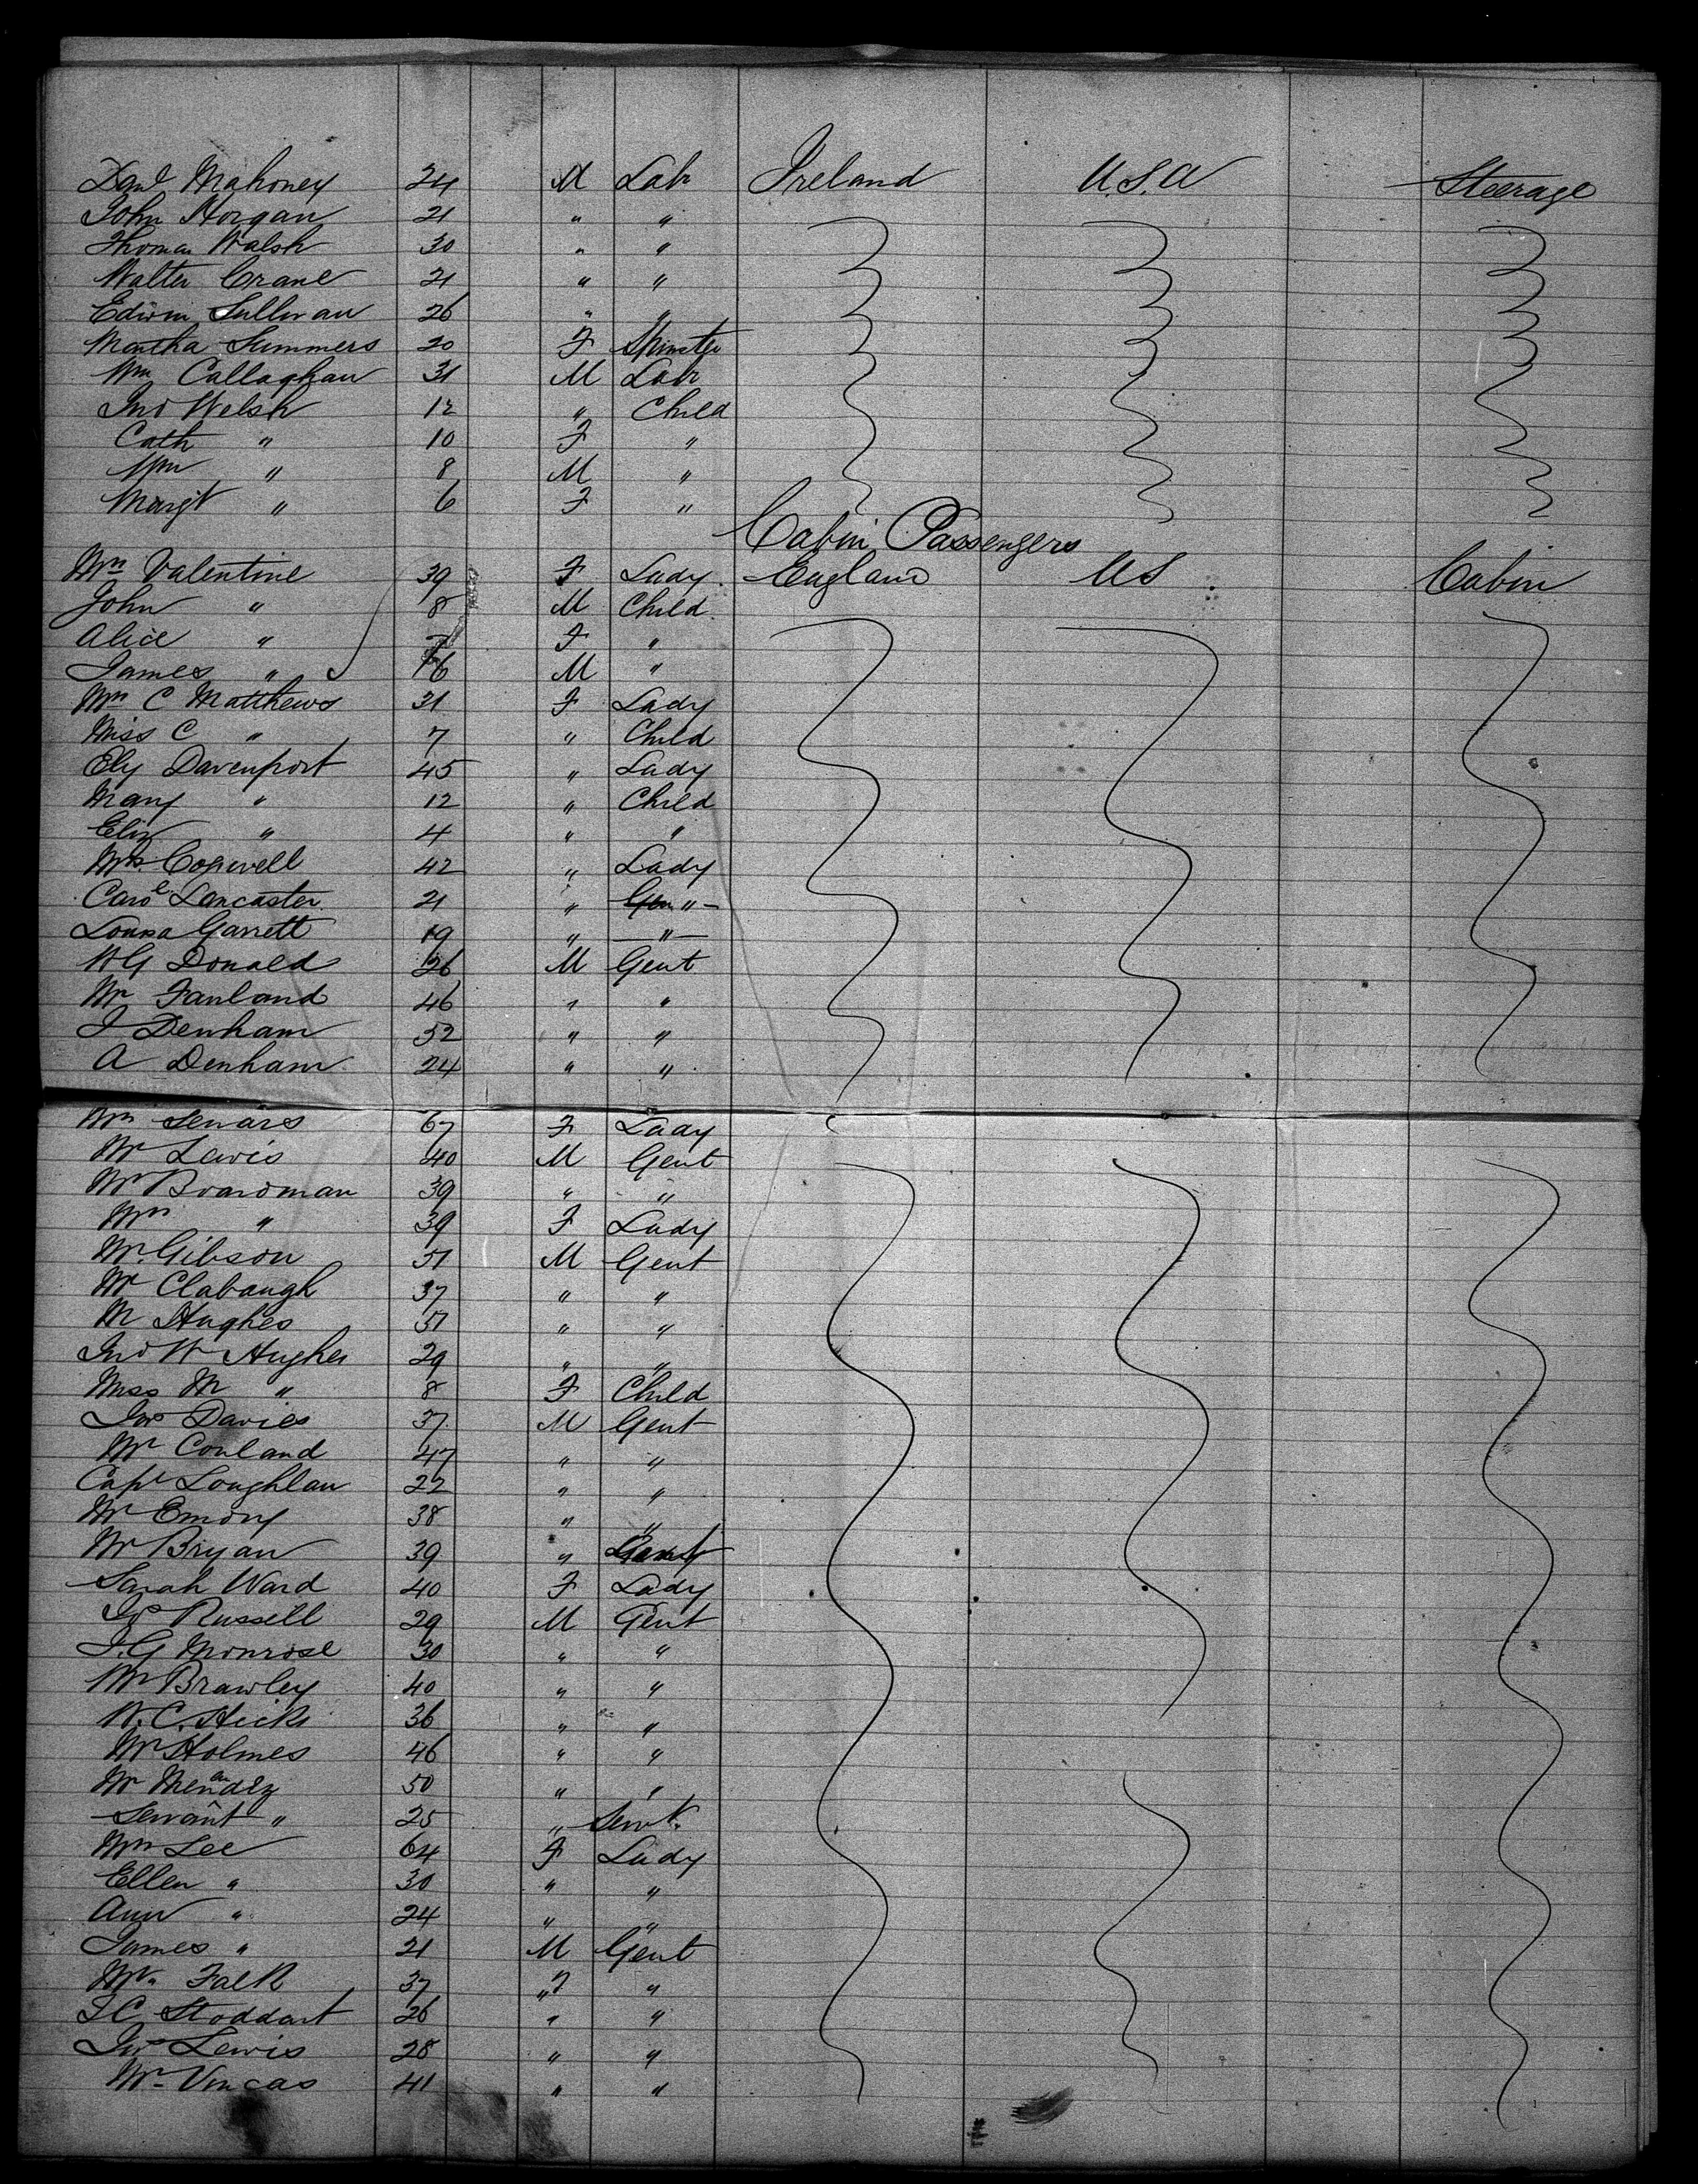 Danl Mahoney 24 M Labr Ireland U.S.A Steerage
John Horgan 21 " "
Thomas Walsh 30 " "
Walter Crane 21 " "
Edwin Sullivan 26 " "
Martha Summers 20 F Spinster
Wm Callaghan 31 M Labr
Jno Welsh 12 " Child
Cath " 10 F "
Wm " 8 M "
Margt " 6 F "
Cabin Passengers
Mrs Valentine 39 F Lady England US Cabin
John " 8 M Child
Alice " 7 F "
James " 6 M "
Mrs C Matthews 31 F Lady
Miss C " 7 " Child
Ely Davenport 45 " Lady
Mary " 12 " Child
Eliz " 4 " "
Mrs Copewell 42 " Lady
Carole Lancaster 21 " "
Louisa Garrett 19 " "
W G Donald 26 M Gent
Mr Fanland 46 " "
J Denham 52 " "
A Denham 24 " "
Mrs 67 F Lady
Mr Lewis 40 M Gent
Mr Boardman 39 " "
Mrs " 39 F Lady
Mr. Gibson 51 M Gent
Mr Clabaugh 37 " "
M Hughes 51 " "
Jno W Hughes 29 " "
Miss M " 8 F Child
Jno Davies 37 M Gent
Mr Conland 47 " "
Capt Loughlan 22 " "
Mr Emory 38 " "
Mr Bryan 39 " Gent
Sarah Ward 40 F Lady
Jno Russell 29 M Gent
J.G Monrose 30 " "
Mr Brawley 40 " "
W. C. Hicks 36 " "
Mr Holmes 46 " "
Mr 50 " "
Servant " 25 " Servt.
Mrs Lee 64 F Lady
Ellen " 30 " "
Ann " 24 " "
James " 21 M Gent
Mr. Falk 37 " "
T C Stoddart 26 " "
Jno Lewis 28 " "
Mr. Vincas 41 " "